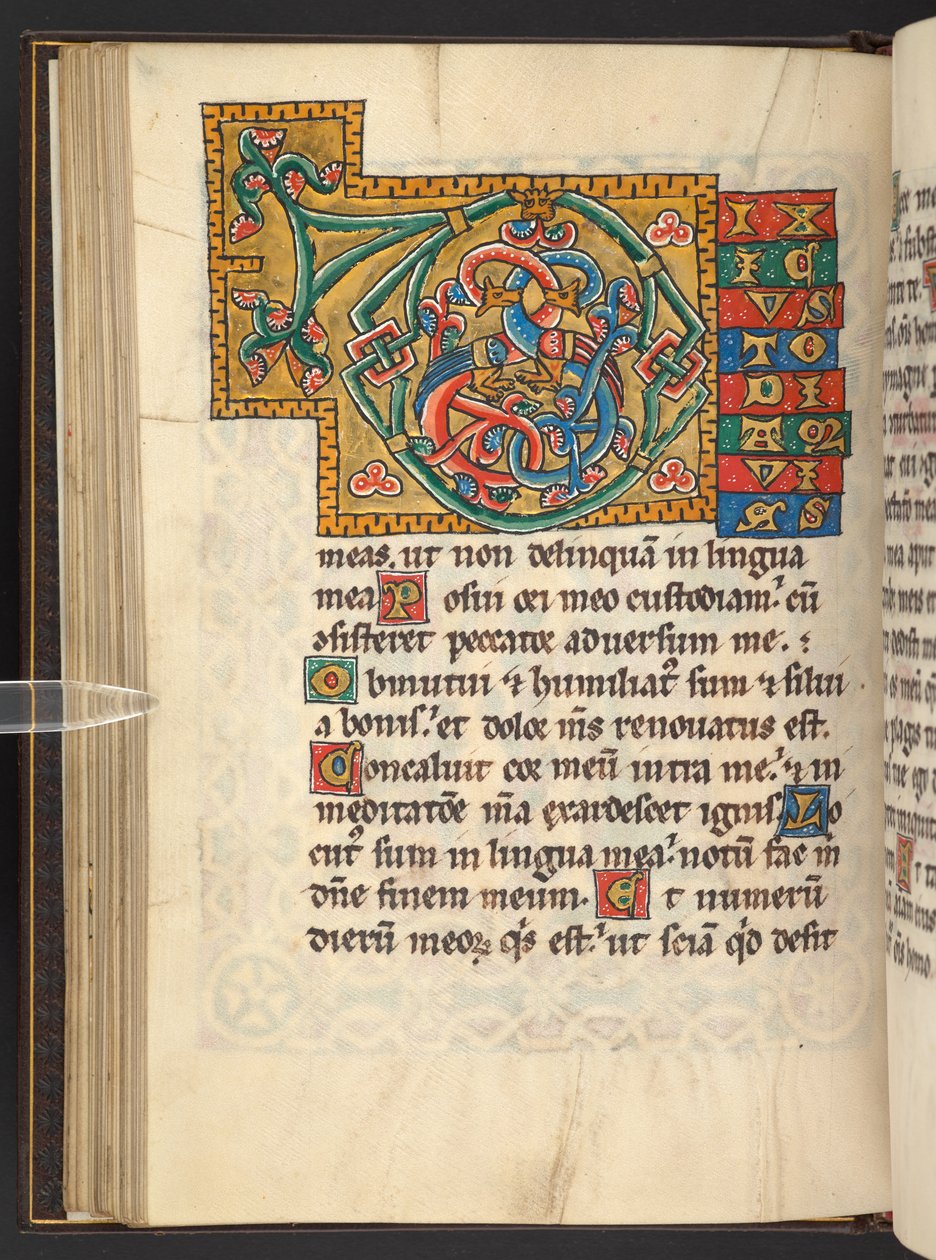 D
IX
I Q
VS
TO
DI
AM
VI
AS
meas. ut non delinquā in lingua
mea Posui ori meo custodiam: cū
ɔsisteret peccator adversum me.
Obmutui ⁊ humiliatꝰ sum ⁊ silui
a bonis: et dolor m̄s renouatus est.
Concaluit cor meū intra me: ⁊ in
meditatōe m̄a exardescet ignis. Lo
cutꝰ sum in lingua mea: notū fac m̄
dn̄e finem meum. Et numerū
dierū meoꝝ q̇s est: ut sciā q̇d desit